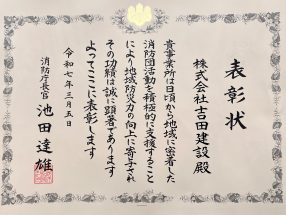 表彰状
株式会社吉田建設殿
貴事業所は日頃から地域に密着した
消防団活動を積極的に支援すること
により地域防災力の向上に寄与され
その功績は誠に顕著であります
よってここに表彰します
令和七年三月五日
消防庁長官 池田達雄